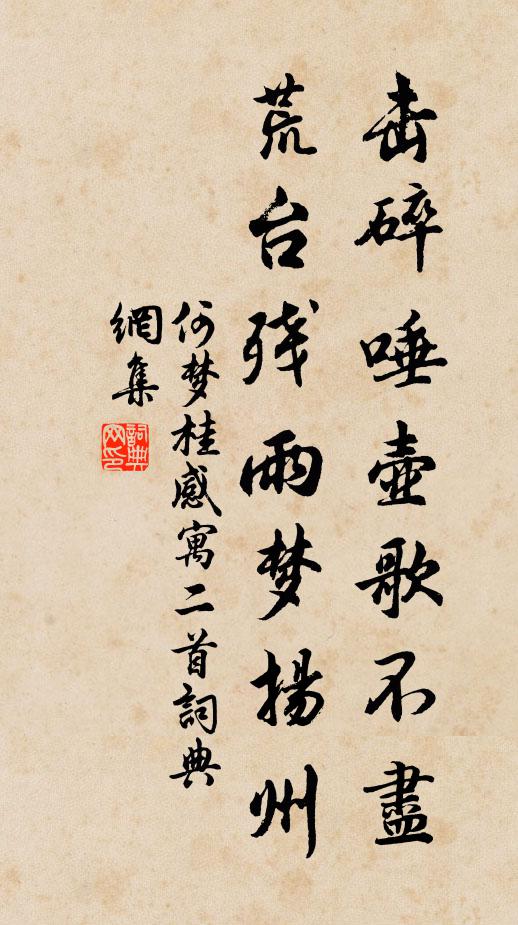 击碎唾壺歌不盡
荒台残雨梦揚州
何梦桂感寓二首詞典
網集
詞典
网印